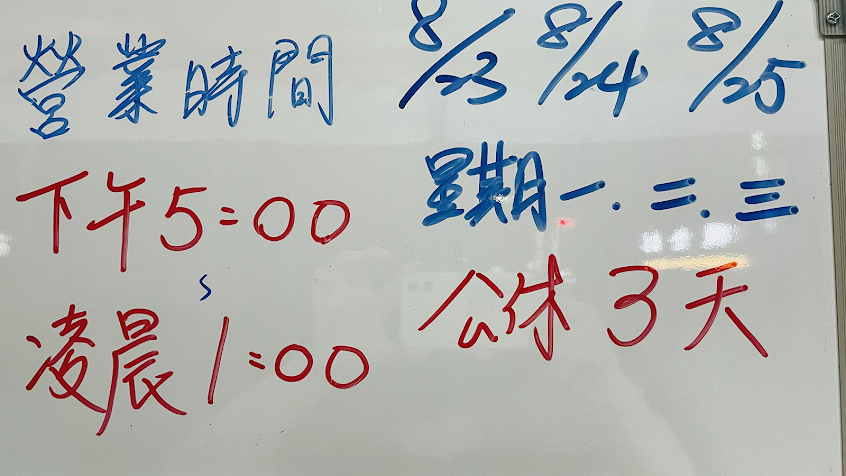 營業時間
下午5:00
~
凌晨1:00
8/23 8/24 8/25
星期一.二.三
公休3天